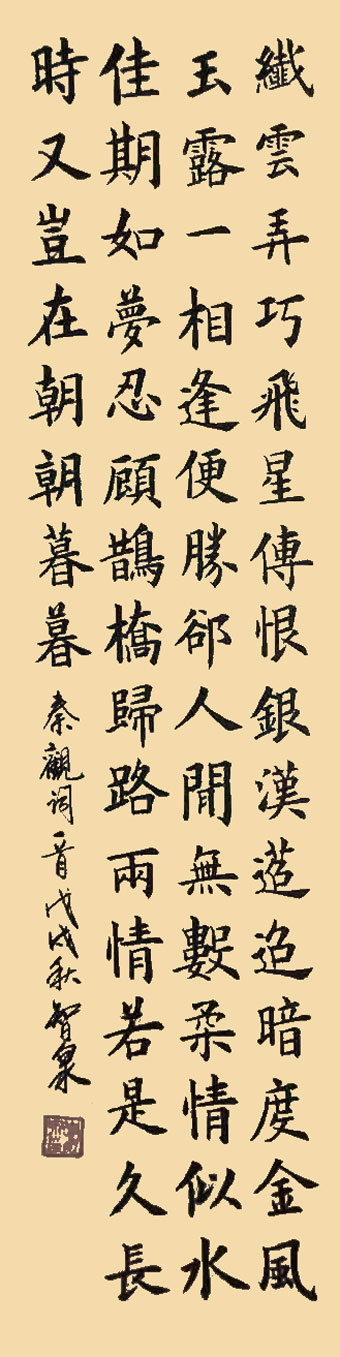 纖雲弄巧飛星傳恨銀漢迢迢暗度金風
玉露一相逢便勝卻人間無數柔情似水
佳期如夢忍顧鵲橋歸路兩情若是久長
時又豈在朝朝暮暮
秦觀詞一首戊戌秋智泉